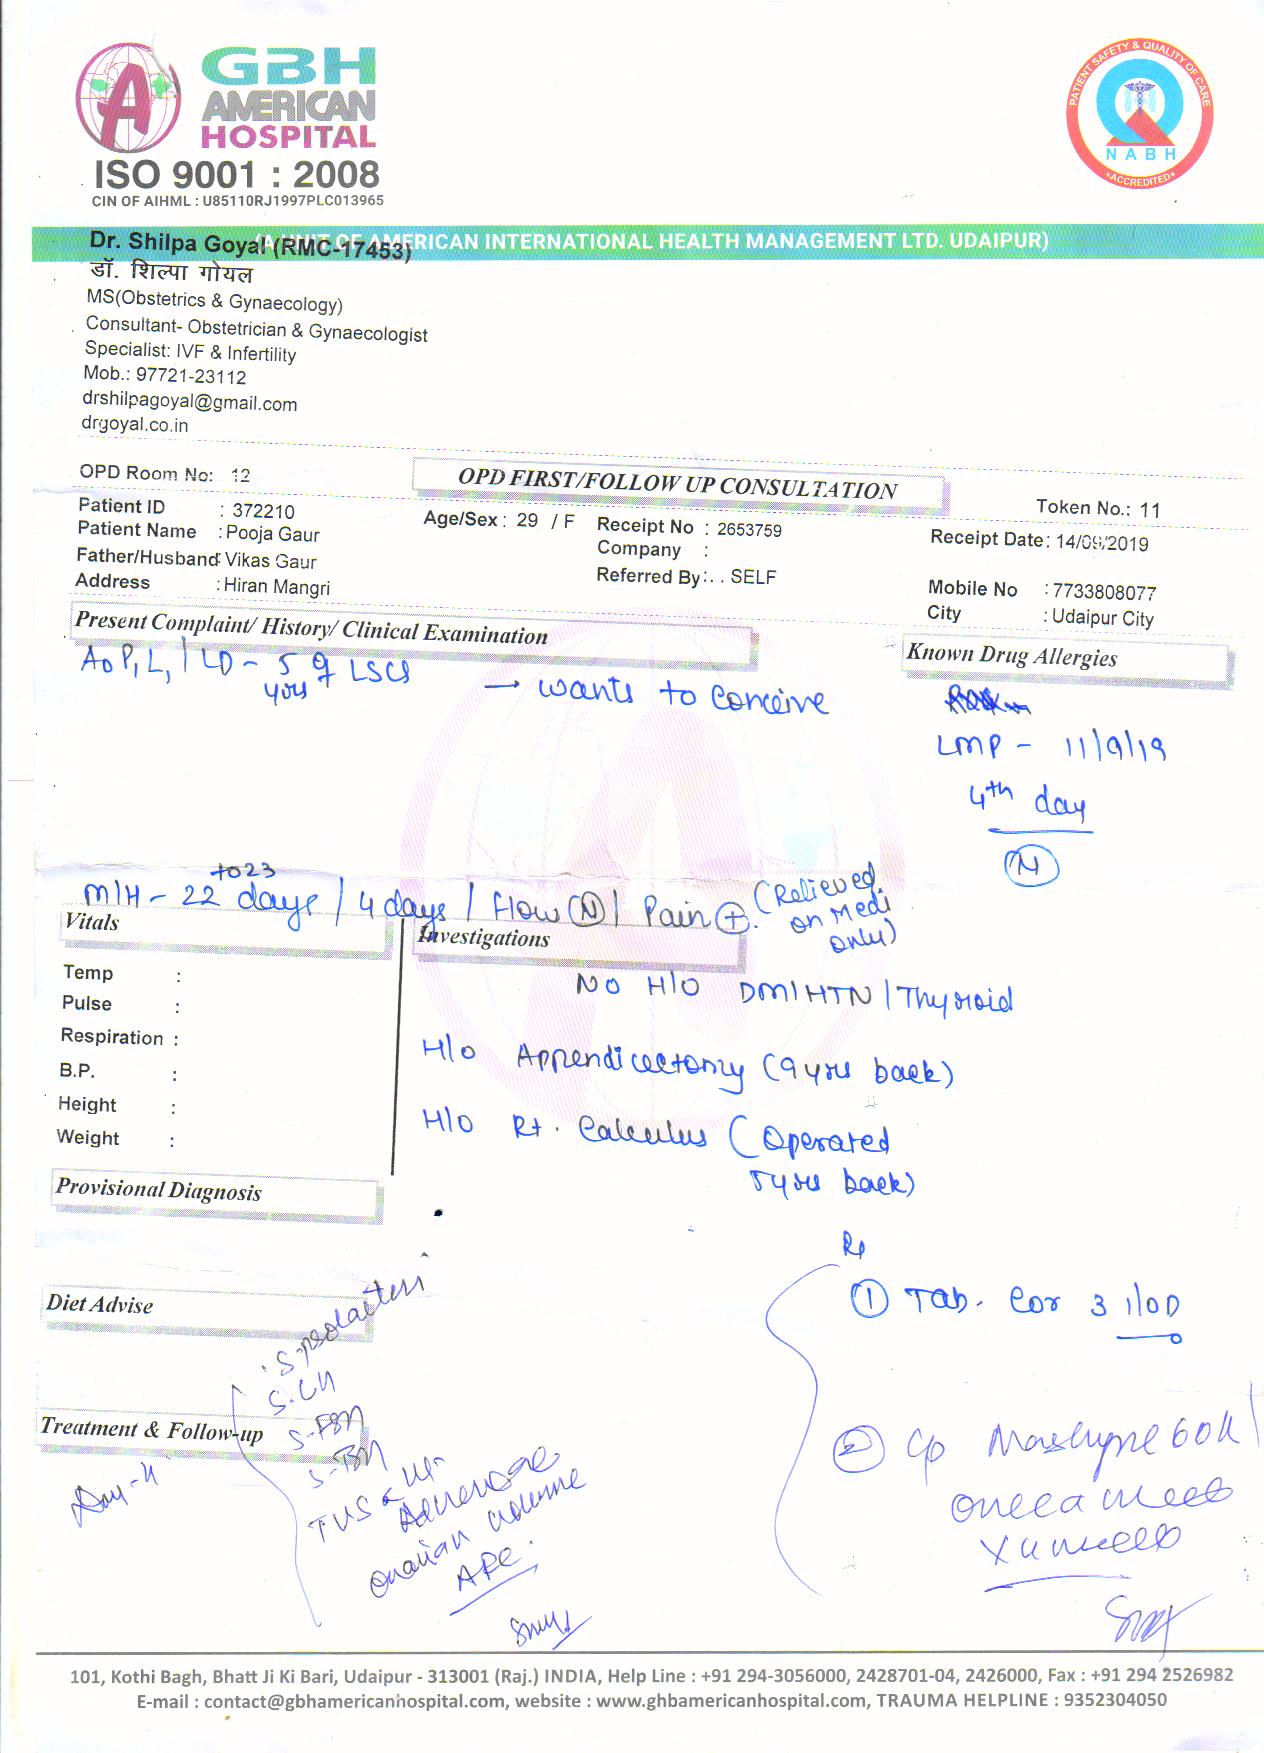 GBH
AMERICAN
HOSPITAL
ISO 9001 : 2008
CIN OF AIHML : U85110RJ1997PLC013965
PATIENT SAFETY & QUALITY OF CARE
NABH
ACCREDITED
(A UNIT OF AMERICAN INTERNATIONAL HEALTH MANAGEMENT LTD. UDAIPUR)
Dr. Shilpa Goyal (RMC-17453)
डॉ. शिल्पा गोयल
MS(Obstetrics & Gynaecology)
Consultant- Obstetrician & Gynaecologist
Specialist: IVF & Infertility
Mob.: 97721-23112
drshilpagoyal@gmail.com
drgoyal.co.in
OPD Room No: 12
OPD FIRST/FOLLOW UP CONSULTATION
Token No.: 11
Patient ID : 372210
Age/Sex : 29 / F
Receipt No : 2653759
Receipt Date: 14/09/2019
Patient Name : Pooja Gaur
Company :
Father/Husband: Vikas Gaur
Referred By: . . SELF
Mobile No : 7733808077
Address : Hiran Mangri
City : Udaipur City
Present Complaint/ History/ Clinical Examination
Known Drug Allergies
A0 P1 L1 / LD - 5 yrs LSCS → wants to conceive
LMP - 11/9/19
4th day
N
M/H - 22 to 23 days / 4 days / flow N / Pain + (Relieved on Medi only)
Vitals
Investigations
Temp :
Pulse :
Respiration :
B.P. :
Height :
Weight :
No H/O DM/HTN/Thyroid
H/o Appendicectomy (9 yrs back)
H/o Rt. Calculus (Operated
5 yrs back)
Provisional Diagnosis
Rx
① Tab. Cor 3 1/OD
Diet Advise
S. prolactin
S. LH
S-FSH
Treatment & Follow-up
Day-4
TVS
ovarian volume
AFC
② Cp 60K
once a week
X 4 weeks
101, Kothi Bagh, Bhatt Ji Ki Bari, Udaipur - 313001 (Raj.) INDIA, Help Line : +91 294-3056000, 2428701-04, 2426000, Fax : +91 294 2526982
E-mail : contact@gbhamericanhospital.com, website : www.ghbamericanhospital.com, TRAUMA HELPLINE : 9352304050